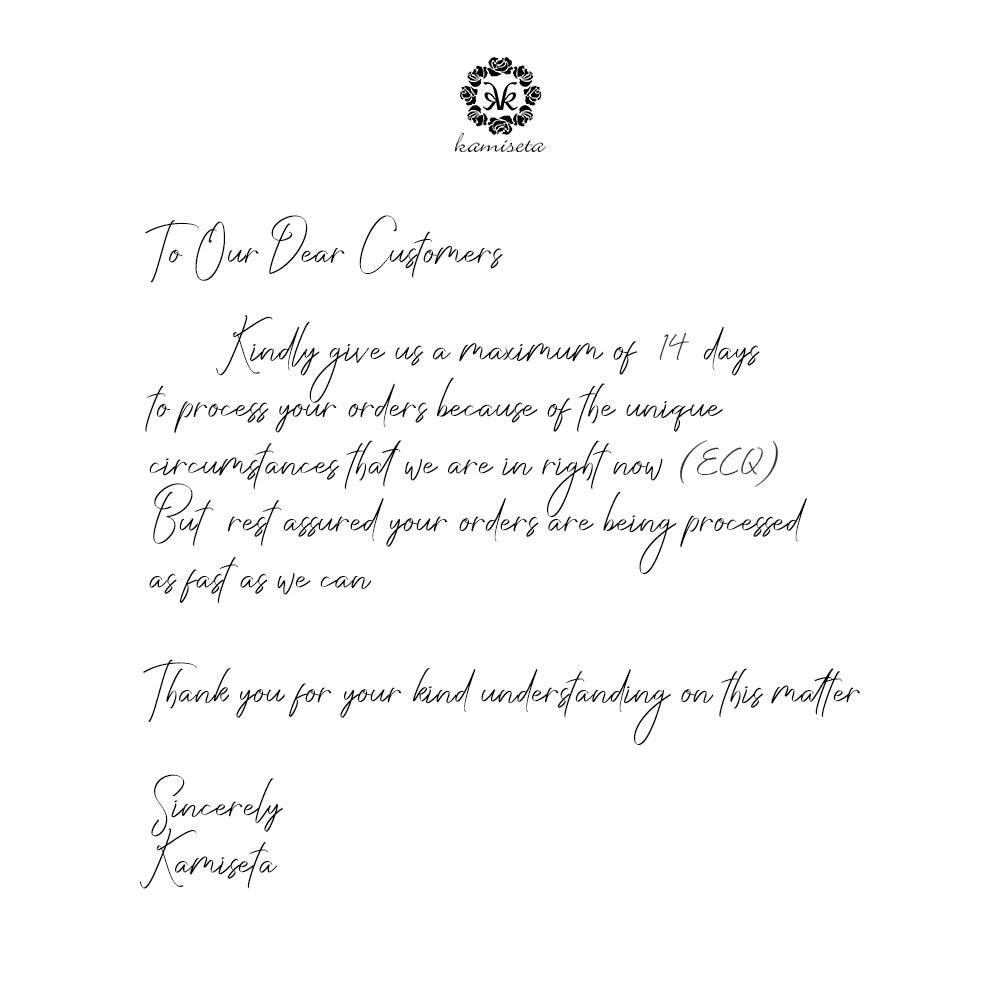 kk
kamiseta
To Our Dear Customers
Kindly give us a maximum of 14 days
to process your orders because of the unique
circumstances that we are in right now (ECQ)
But rest assured your orders are being processed
as fast as we can
Thank you for your kind understanding on this matter
Sincerely
Kamiseta